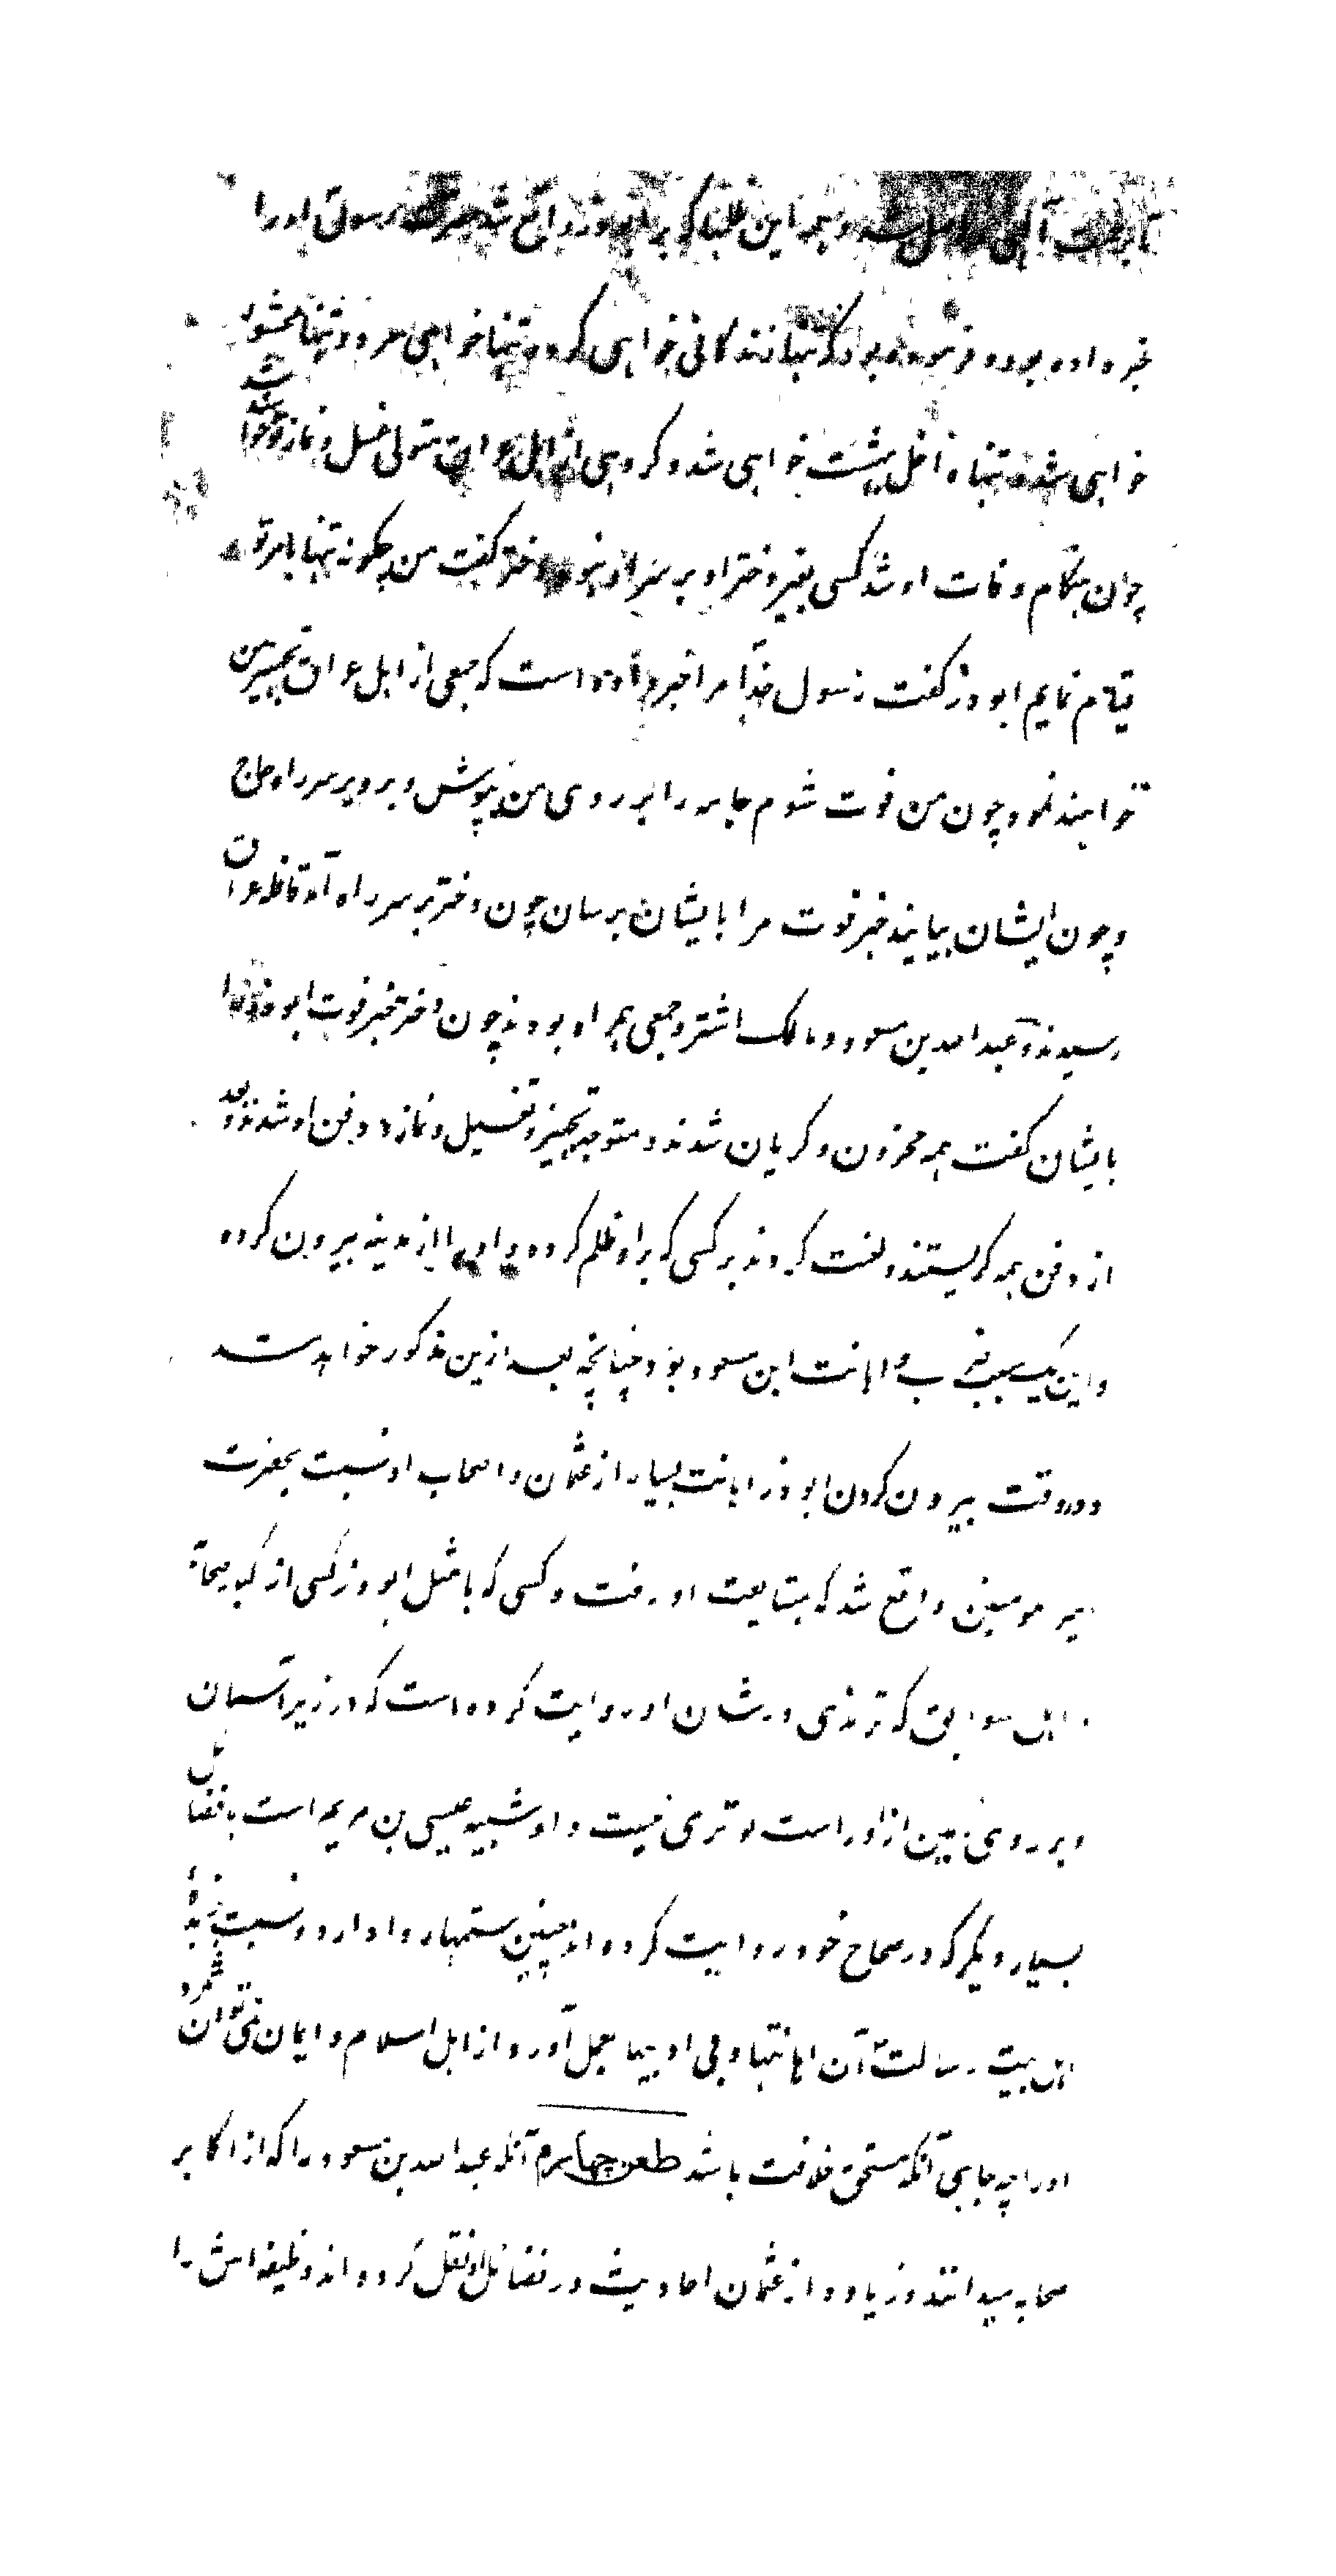 و همه این ظلمها که بر ابوذر واقع شد حضرت رسول او را
خبر داده بود و فرموده بود که تنها زندگانی خواهی کرد و تنها خواهی مرد و تنها محشور
خواهی شد و تنها داخل بهشت خواهی شد و گروهی از اهل عراق متولی غسل و نماز تو خواهند شد
چون هنگام وفات او شد کسی بغیر دختر او بر سر او نبود دختر گفت من چگونه تنها بامر تو
قیام نمایم ابوذر گفت رسول خدا مرا خبر داده است که جمعی از اهل عراق تجهیز من
خواهند نمود چون من فوت شوم جامه را بر روی من بپوش و برو بر سر راه حاج
و چون ایشان بیایند خبر فوت مرا بایشان برسان چون دختر بر سر راه آمد قافله عراق
رسیدند و عبد الله بن مسعود و مالک اشتر و جمعی همراه او بودند چون دختر خبر فوت ابوذر را
بایشان گفت همه محزون و گریان شدند و متوجه تجهیز و تغسیل و نماز و دفن او شدند و بعد
از دفن همه گریستند و لعنت کردند بر کسی که بر او ظلم کرده و او را از مدینه بیرون کرده
و این یک سبب اهانت ابن مسعود بود چنانچه بعد ازین مذکور خواهد شد
و در وقت بیرون کردن ابوذر اهانت بسیار از عثمان و اصحاب او نسبت بحضرت
امیر مومنین واقع شد که بمتابعت او رفت و کسی که با مثل ابوذر کسی از کبار صحابه
و اهل سوابق که ترمذی در شان او روایت کرده است که در زیر آسمان
و بر روی زمین از او راست گو تری نیست و او شبیه عیسی بن مریم است با فضایل
بسیار دیگر که در صحاح خود روایت کرده اند چنین ستمها روا دارد و نسبت
اهل بیت رسالت آن اهانتها و بی ادبیها بعمل آورد از اهل اسلام و ایمان نمی توان شمرد
او را چه جای آنکه مستحق خلافت باشد طعن چهارم آنکه عبد الله بن مسعود را که از اکابر
صحابه میدانند و زیاده از عثمان احادیث در فضائل او نقل کرده اند وظیفه اش را